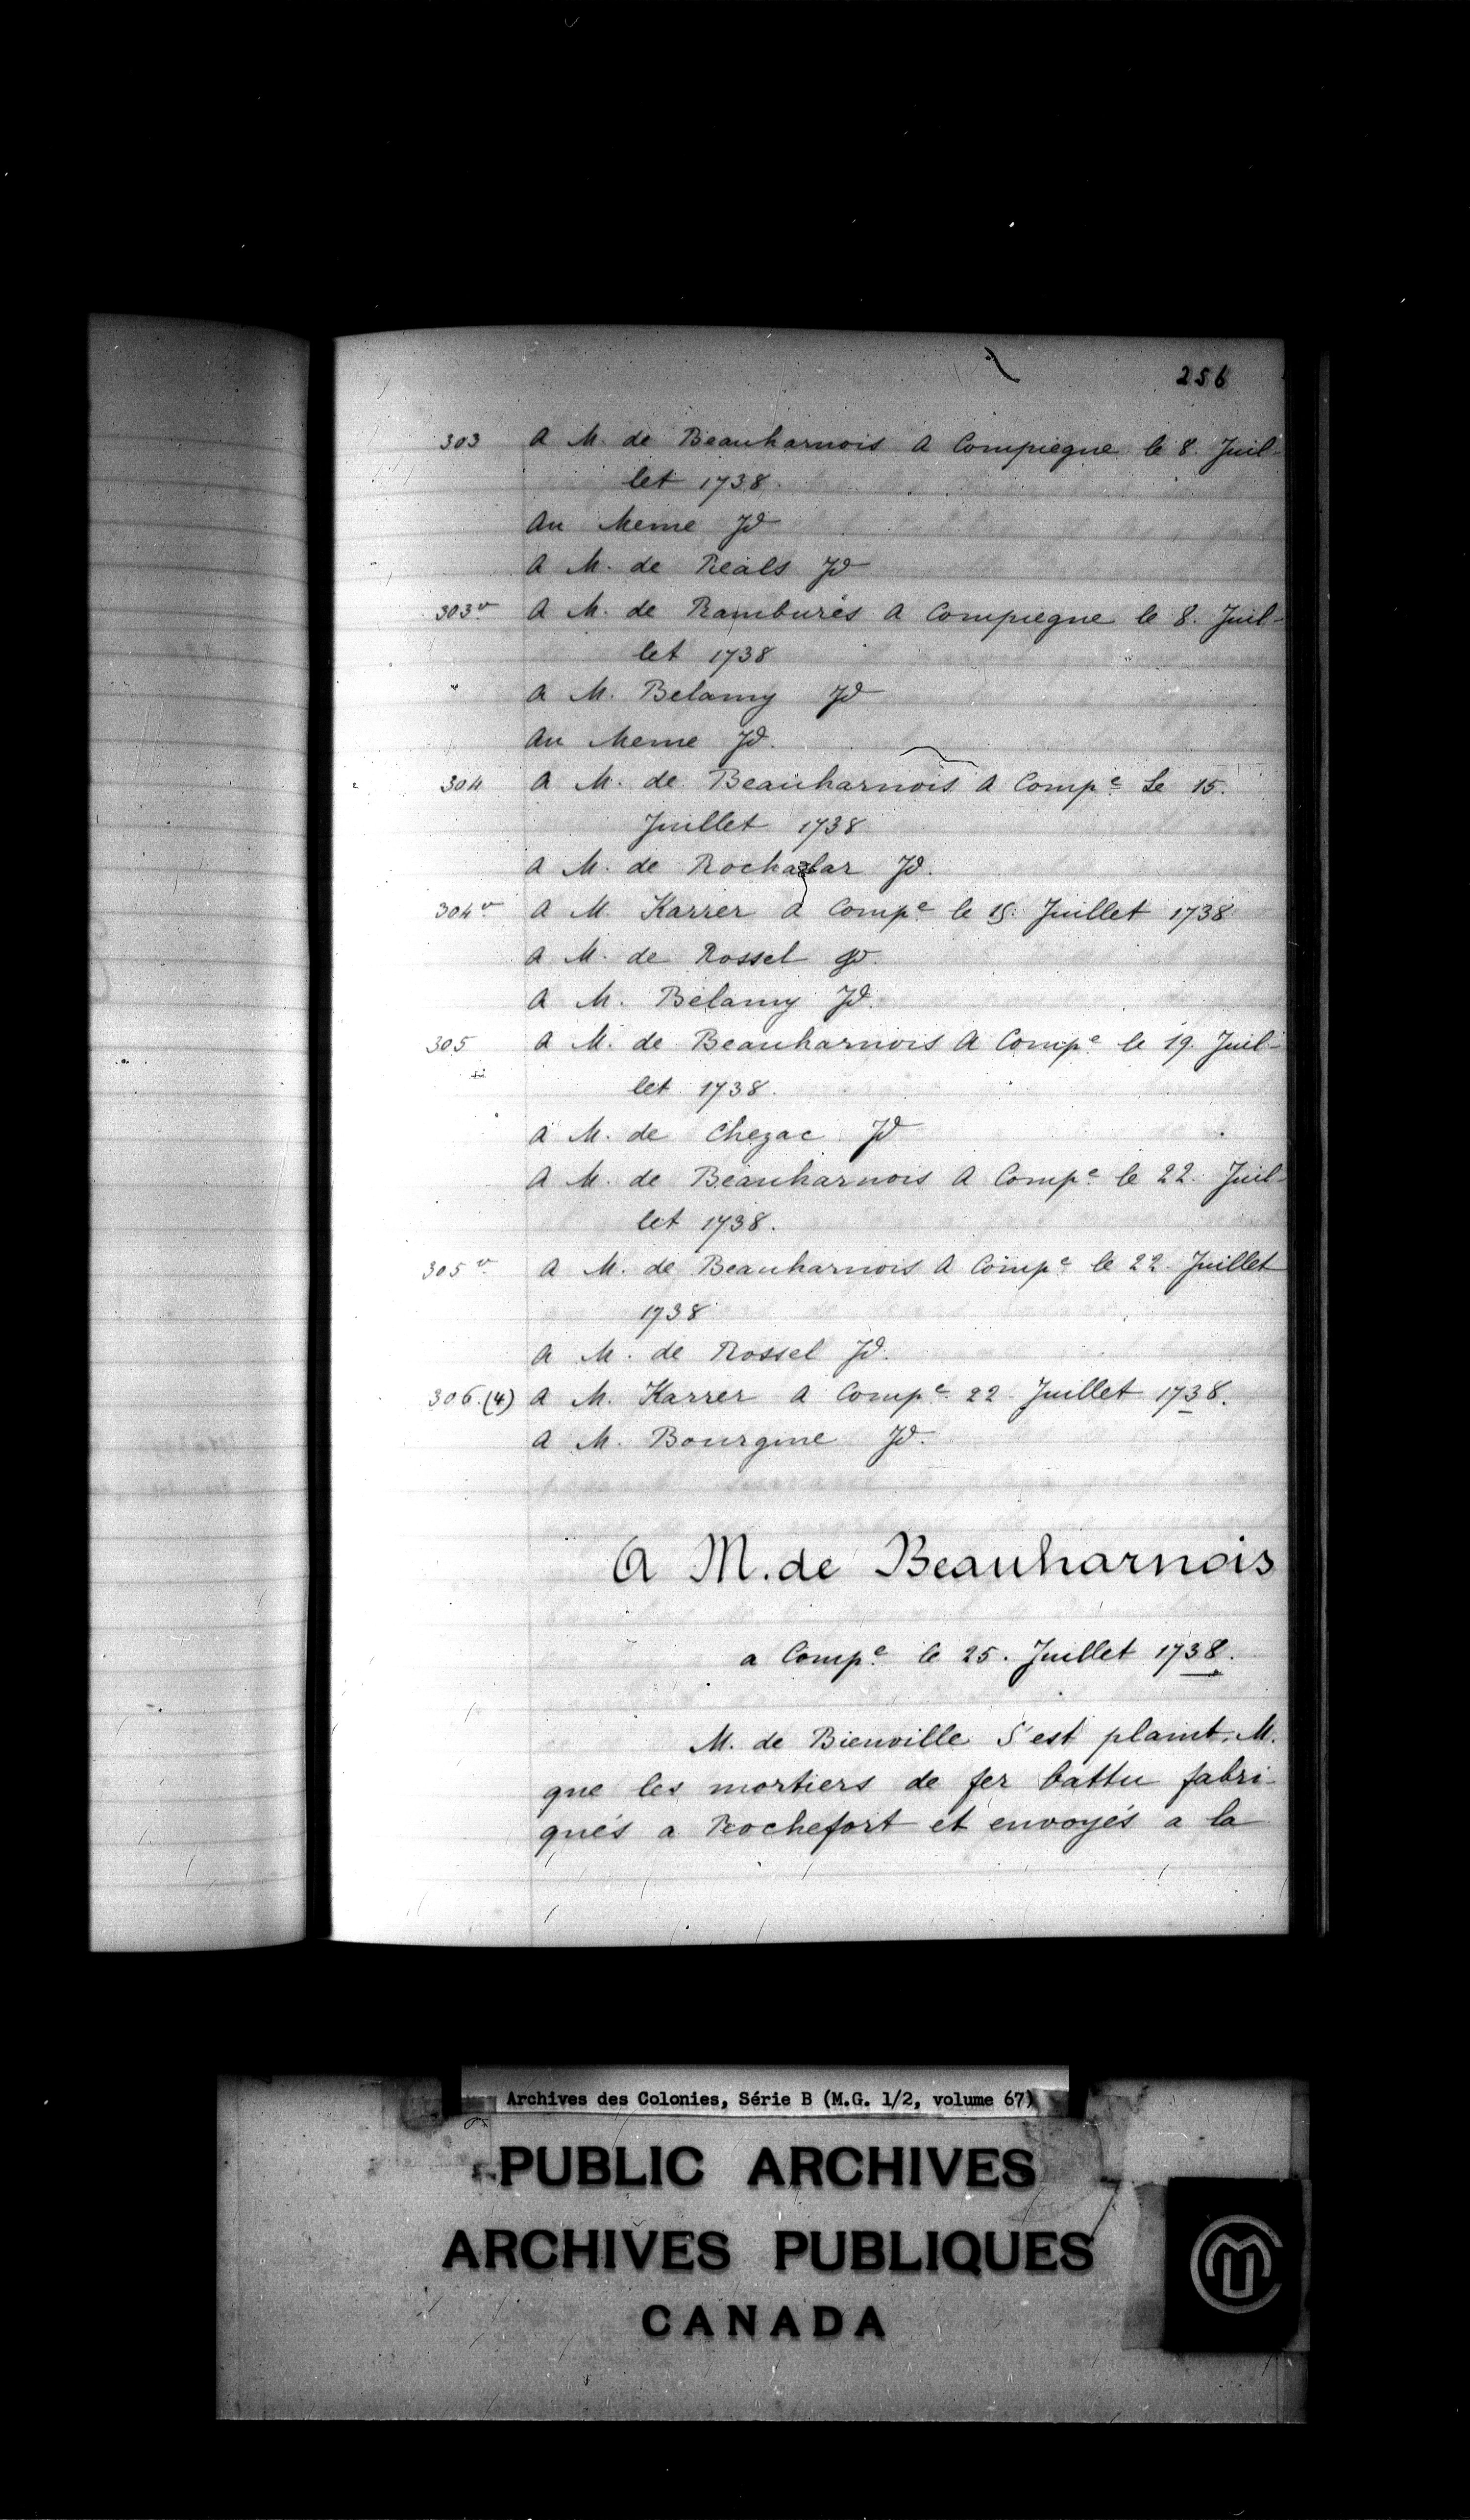 256
303 A M. de Beauharnois A Compiegne le 8. Juil-
let 1738.
Au Meme Jd
A M. de Reals Jd
303 v. A M. de Ramburés A Compiegne le 8. Juil-
let 1738
A M. Belamy Jd
Au Meme Jd.
304 A M. de Beauharnois A Comp.e Le 15.
Juillet 1738
A M. de Jd.
304 v. A M. Karrer A Comp.e le 15. Juillet 1738
A M. de Rossel
A M. Belamy Jd.
305 A M. de Beauharnois A Comp.e le 19. Juil-
let 1738.
A M. de Chezac Jd
A M. de Beauharnois A Comp.e le 22. Juil-
let 1738.
305 v. A M. de Beauharnois A Comp.e le 22. Juillet
1738
A M. de Rossel Jd.
306.(4) A M. Karrer A Comp.e 22 Juillet 1738.
A M. Bourgine Jd.
A M. de Beauharnois
a Comp.e le 25. Juillet 1738.
M. de Bienville S'est plaint, M.
que les mortiers de fer battu fabri-
qués a Rochefort et envoyés a la
Archives des Colonies, Série B (M.G. 1/2, volume 67)
PUBLIC ARCHIVES
ARCHIVES PUBLIQUES
CANADA